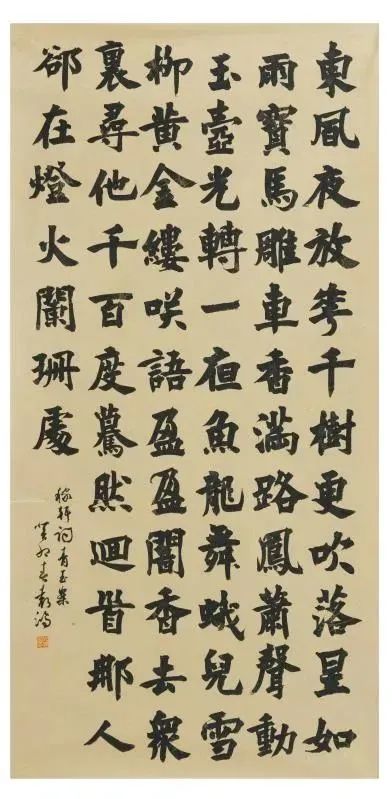 東風夜放華千樹更吹落星如
雨寶馬雕車香滿路鳳簫聲動
玉壺光轉一夜魚龍舞蛾兒雪
柳黃金縷咲語盈盈闇香去衆
裏尋他千百度驀然迴首那人
卻在燈火闌珊處
稼軒詞青玉案
癸卯春